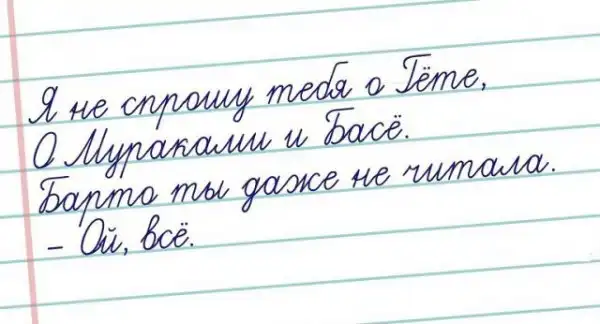 Я не спрошу тебя о Гёте,
О Мураками и Басё.
Барто ты даже не читала.
– Ой, всё.